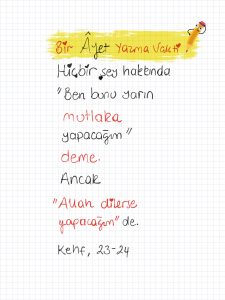 Bir Âyet Yazma Vakti.
Hiçbir şey hakkında
"Ben bunu yarın
mutlaka
yapacağım"
deme.
Ancak
"Allah dilerse
yapacağım" de.
Kehf, 23-24